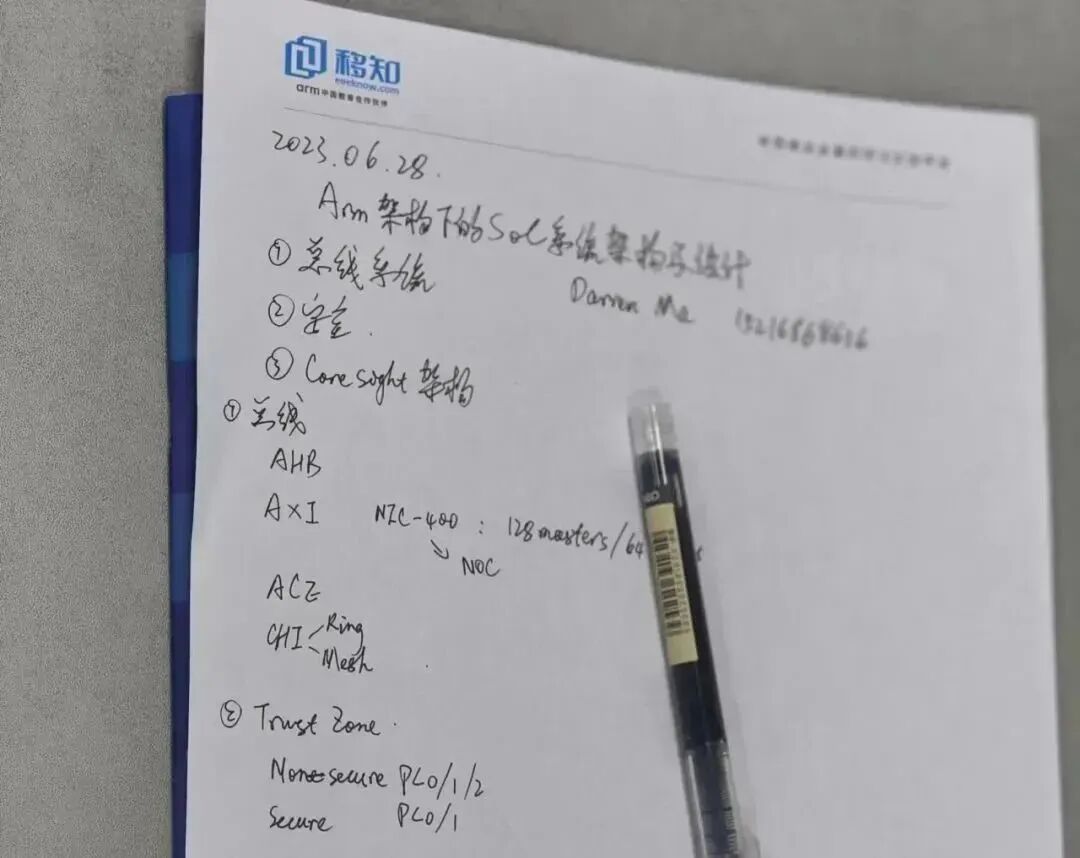 移知
eeeknow.com
arm中国教育合作伙伴
2023.06.28.
Arm架构下的SoC系统架构与设计
① 总线系统
Darren Ma
② 安全.
③ Coresight 架构
① 总线
AHB
AXI NIC-400 : 128 masters/64
NOC
ACE
CHI Ring
Mesh
② Trust Zone.
Non-secure PL0/1/2
Secure PL0/1